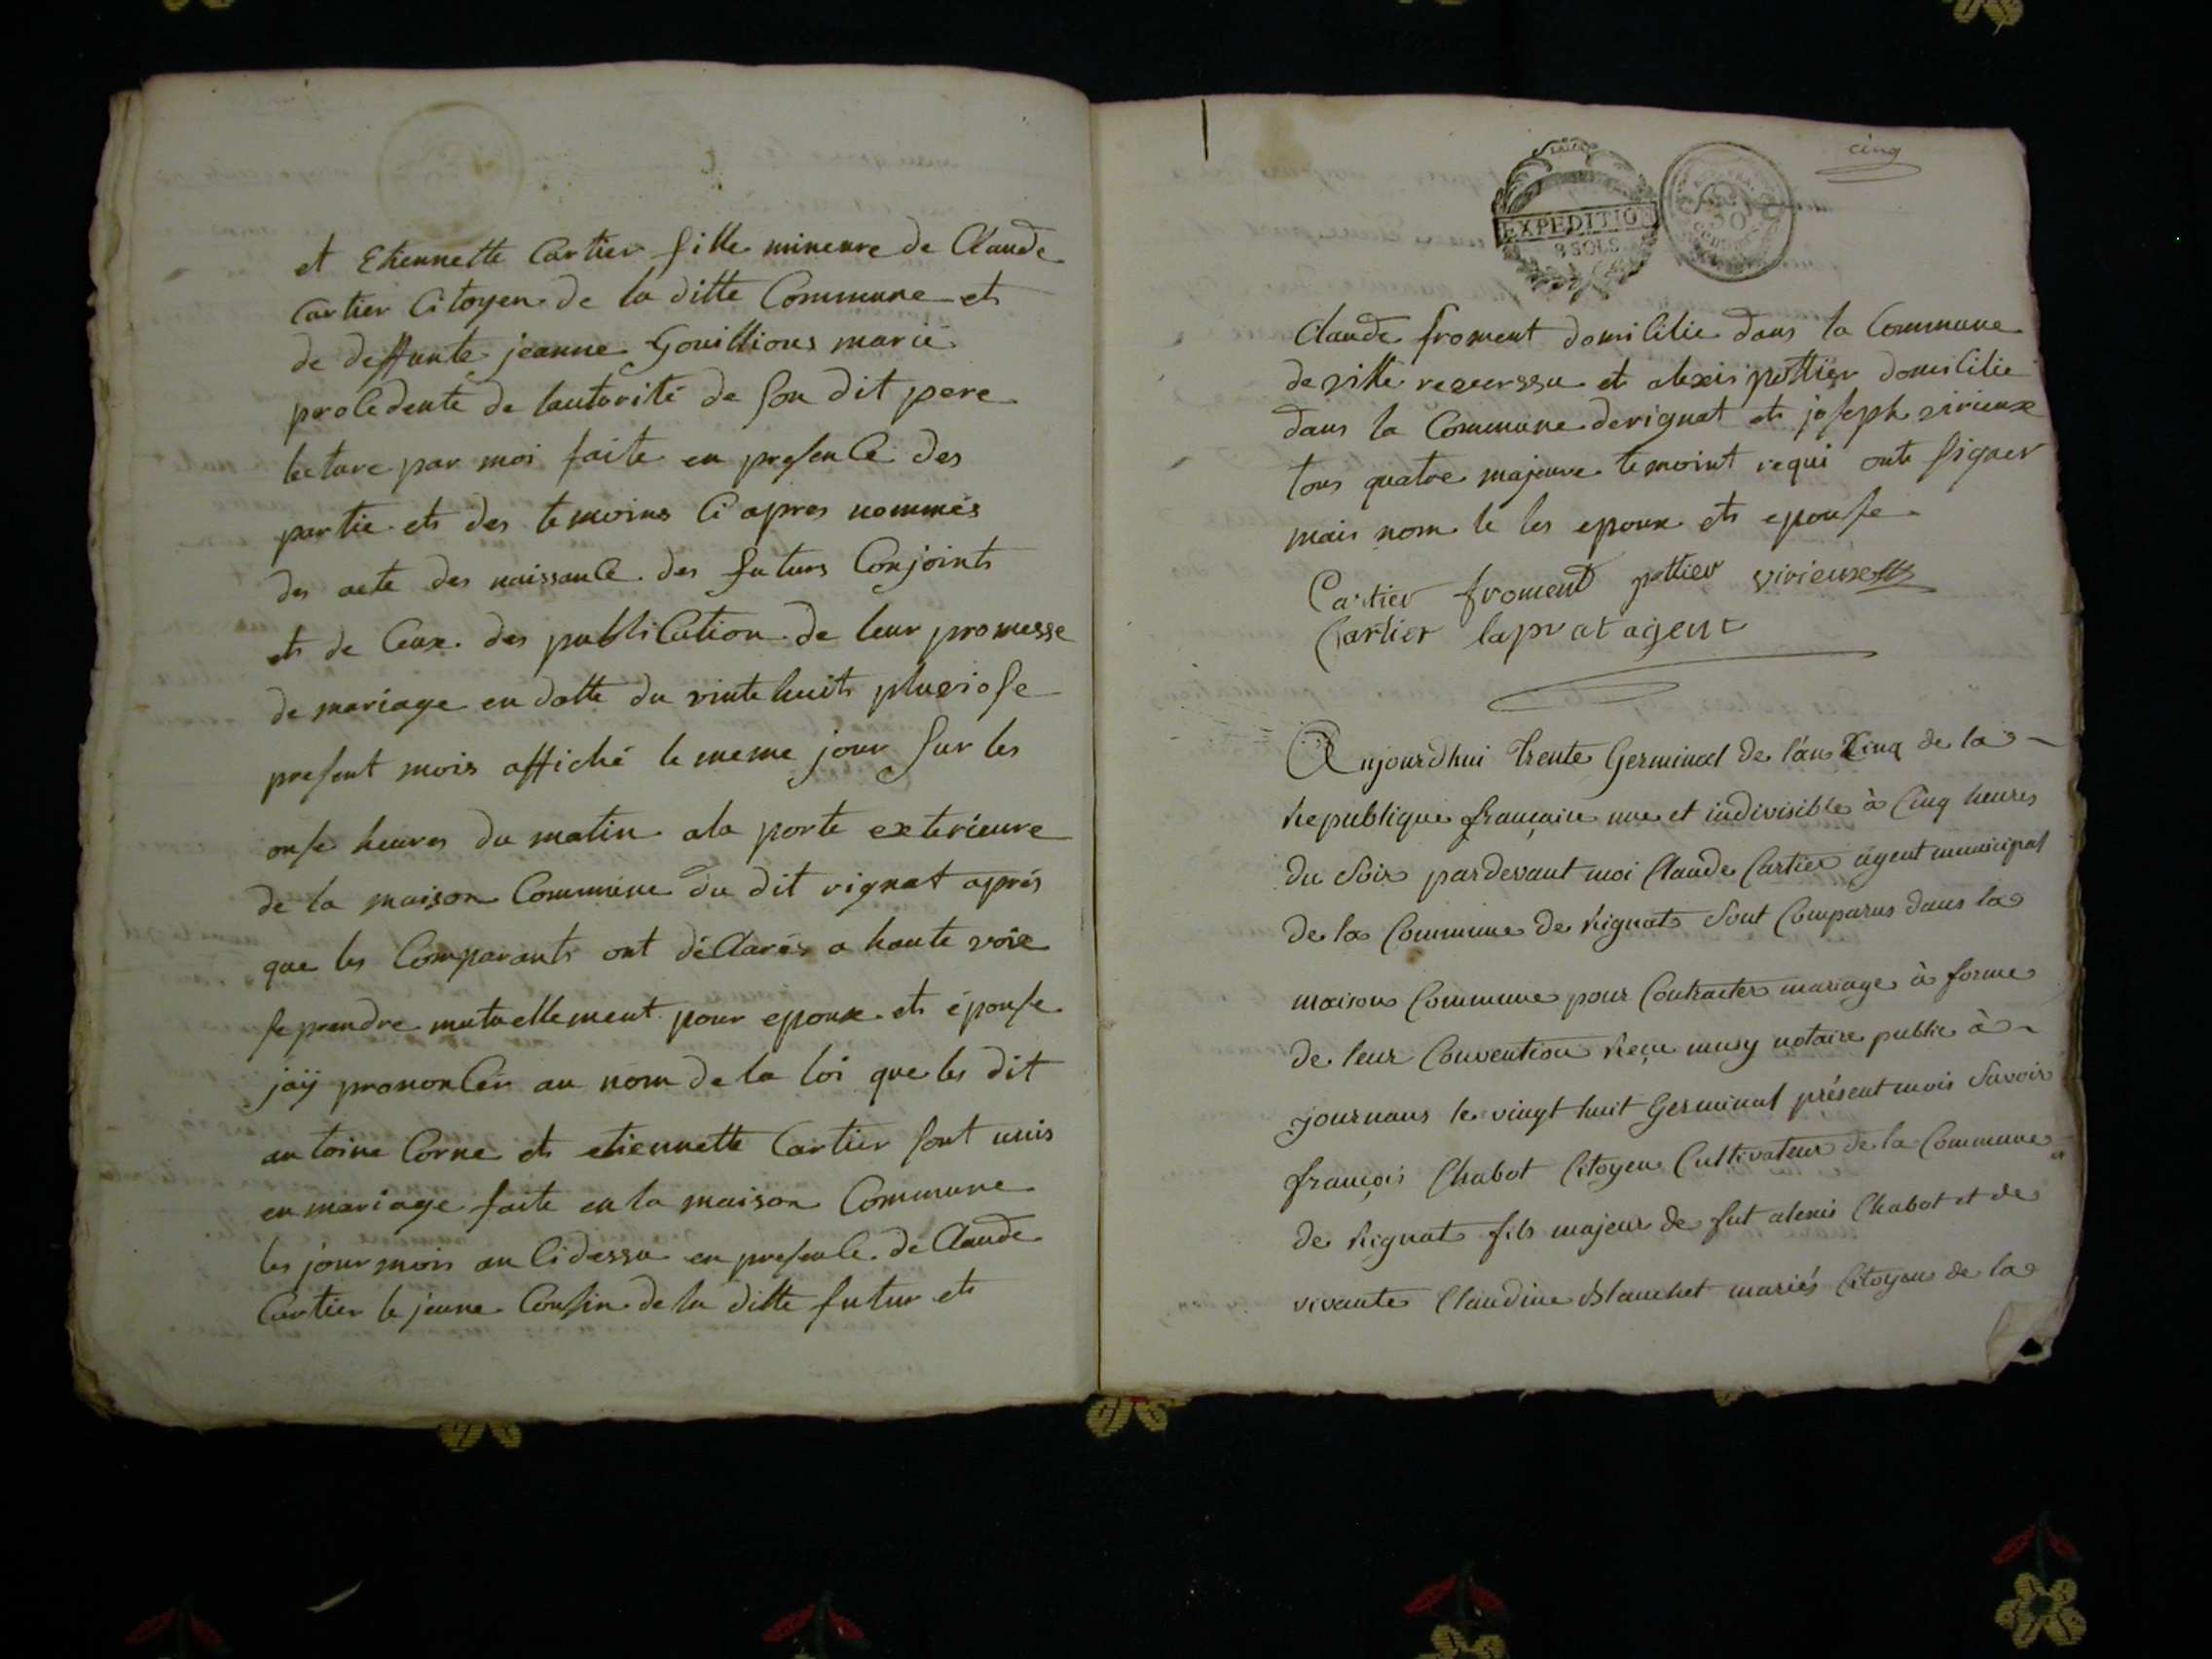 et Etiennette Cartier fille mineure de Claude
Cartier Citoyen de la ditte Commune et
de deffunte jeanne Gouillious marié
procedente de lautorité de son dit pere
lecture par moi faite en presence des
partie et des temoins Ci apres nommés
des acte des naissance des futurs Conjoints
et de Ceux des publication de leur promesse
de mariage en datte du vinte huit pluviose
present mois affiché le meme jour sur les
onse heures du matin ala porte exterieure
de la maison Commune du dit rignat aprés
que les Comparants ont déClarés a haute voie
se prendre mutuellement pour epoux et épouse
jaÿ prononcér au nom de la loi que les dit
antoine Corne et etiennette Cartier sont unis
en mariage faite en la maison Commune
les jour mois an Cidessu en presence de Claude
Cartier le jeune Cousin de la ditte futur et
cinq
EXPEDITION
8 SOLS
50
Centimes
Claude froment domicilie dans la Commune
de ville reverssu et alexis pottier domicilie
dans la Commune derignat et joseph virieux
tous quatre majeure temoint requi onte signer
mais nom le les epoux et epouse
Cartier froment pottier virieux
Cartier laprat agent
Aujourdhui trente Germinal de l'an Cinq de la
Republique française une et indivisible à Cinq heures
du Soir pardevant moi Claude Cartier agent municipal
de la Commune de Rignat Sont Comparus dans la
maison Commune pour Contracter mariage à forme
de leur Convention Reçu musy notaire public à
journans le vingt huit Germinal présent mois Savoir
françois Chabot Citoyen Cultivateur de la Commune
de Rignat fils majeur de fut alexis Chabot et de
vivante Claudine Blanchet mariés Citoyens de la